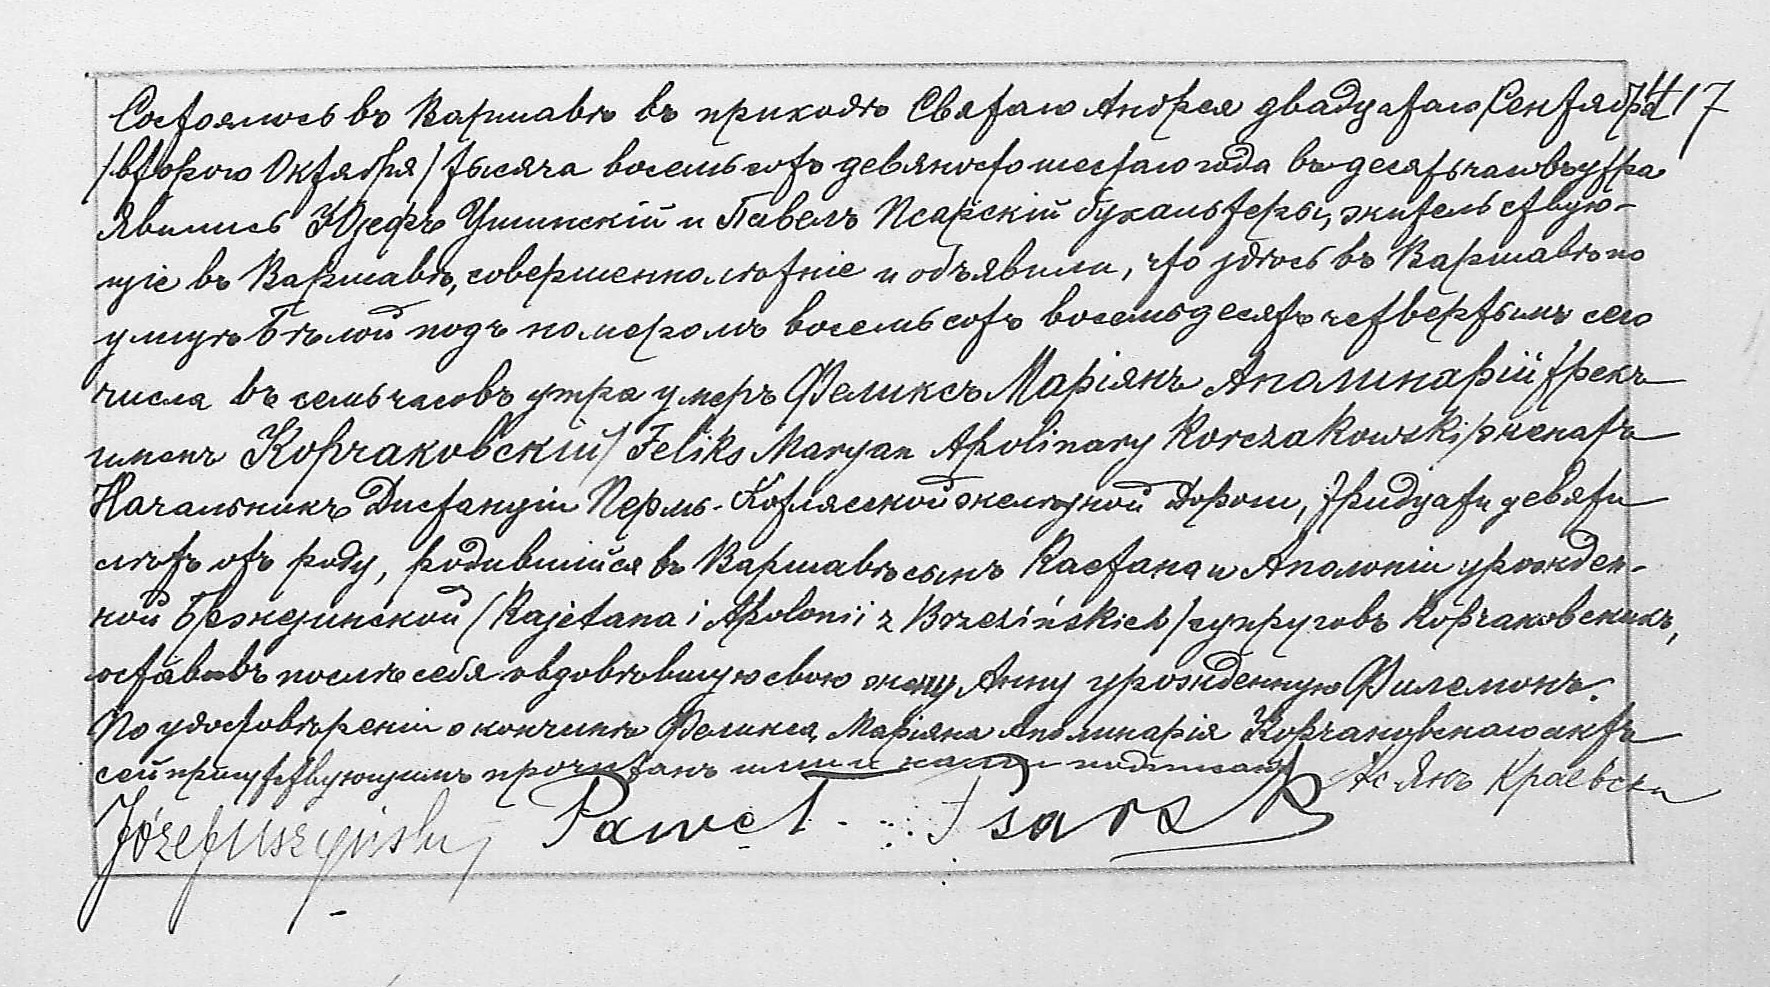 Состоялось въ Варшавѣ въ приходѣ Святаго Андрея двадцатаго Сентября 17
/второго Октября/ тысяча восемьсотъ девяносто шестаго года въ десять часовъ утра
Явились Юзефъ Ушинскій и Павелъ Псарскій бухальтеры, жительствую-
щіе въ Варшавѣ, совершеннолѣтніе и объявили, что здѣсь въ Варшавѣ по
улицѣ Бѣлой подъ номеромъ восемьсотъ восемьдесятъ четвертымъ сего
числа въ семь часовъ утра умеръ Феликсъ Маріянъ Аполинарій трехъ
именъ Корчаковскій /Feliks Maryan Apolinary Korczakowski/ женатъ
Начальникъ Дистанціи Пермь-Котласской желѣзной Дороги, тридцати девяти
лѣтъ отъ роду, родившійся въ Варшавѣ сынъ Каетана и Аполоніи урожден-
ной Бржезинской /Kajetana i Apolonii z Brzezińskich/ супруговъ Корчаковскихъ,
оставивъ послѣ себя овдовѣвшую свою жену Анну урожденную Филемонъ.
По удостовѣреніи о кончинѣ Феликса Маріяна Аполинарія Корчаковскаго актъ
сей присутствующимъ прочитанъ ими и нами подписанъ Кс Янъ Краевски
Józef Uszyński Paweł Psarski